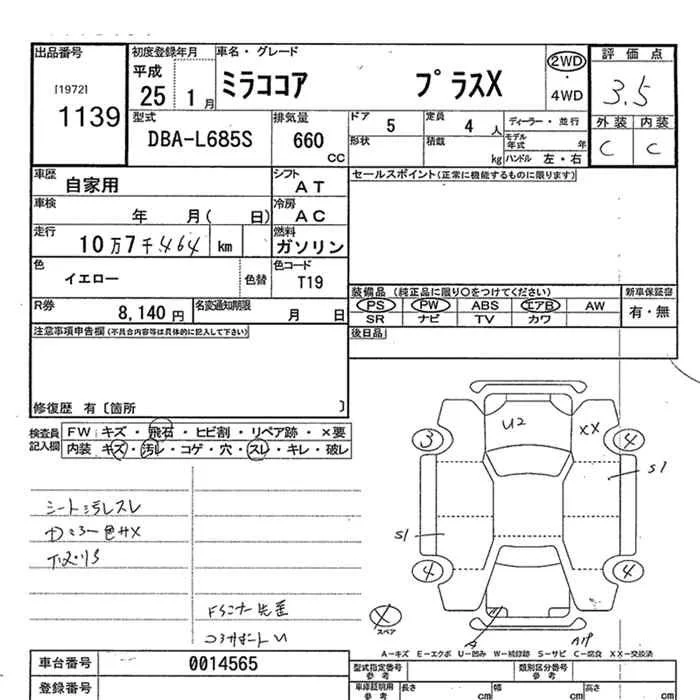 出品番号
[1972]
1139
初度登録年月
平成
25 1月
車名・グレード
ミラココア プラスX
2WD
・
4WD
評価点
3.5
外装 内装
C C
型式
DBA-L685S
排気量
660
CC
ドア 5
定員 4人
形状
積載 kg
ディーラー・並行
モデル年式 年
ハンドル 左・右
車歴 自家用
シフト AT
セールスポイント(正常に機能するものに限ります)
車検 年 月( 日)
冷房 AC
走行 10万7千464 km
燃料 ガソリン
色 イエロー 色替
色コード T19
装備品 (純正品に限り○をつけてください)
新車保証書
有・無
PS PW ABS エアB AW
SR ナビ TV カワ
R券 8,140円
名変通知期限 月 日
後日品
注意事項申告欄(不具合内容等は具体的に記入して下さい)
修復歴 有〔箇所 〕
検査員記入欄
FW キズ・飛石・ヒビ割・リペア跡・×要
内装 キズ・汚レ・コゲ・穴・スレ・キレ・破レ
シート汚レスレ
U2
XX
3
4
S1
S1
4
4
スペア
A
A-キズ E-エクボ U-凹み W-補修跡 S-サビ C-腐食 XX-交換済
車台番号 0014565
登録番号
型式指定番号
参考
類別区分番号
参考
車庫証明用
参考
長さ cm
幅 cm
高さ cm